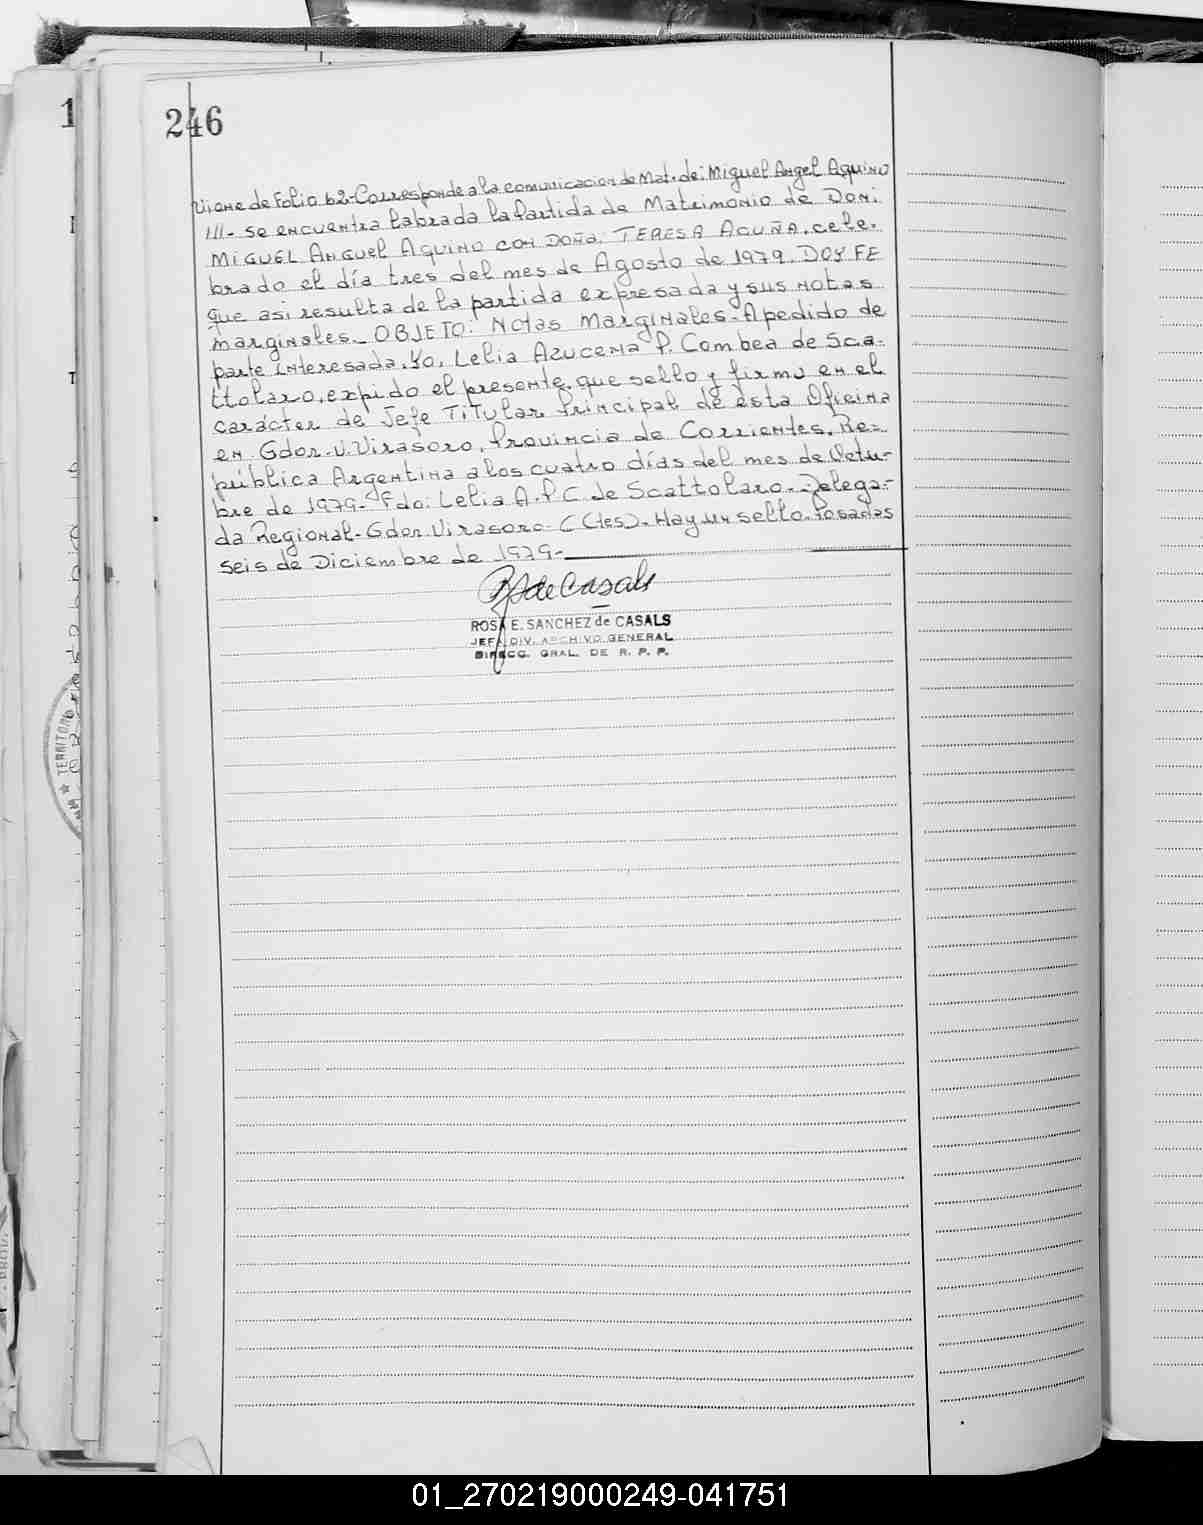 246
Viene de Folio 62-Corresponde a la comunicacion de Mat. de: Miguel Angel Aquino
///- se encuentra labrada la Partida de Matrimonio de Don:
MIGUEL ANGUEL AQUINO CON DOÑA: TERESA ACUÑA, cele-
brado el día tres del mes de Agosto de 1979. DOY FE
que asi resulta de la partida expresada y sus notas
marginales.- OBJETO: Notas Marginales- A pedido de
parte Interesada, Yo, Lelia Azucena P. Combea de Sca-
ttolaro, expido el presente, que sello y firmo en el
carácter de Jefe Titular Principal de esta Oficina
en Gdor. V. Virasoro, Provincia de Corrientes, Re-
pública Argentina a los cuatro días del mes de Octu-
bre de 1979- Fdo: Lelia A. P. C. de Scattolaro- Delega-
da Regional- Gdor. Virasoro- (Ctes)- Hay un sello. Posadas
seis de Diciembre de 1979-
de Casals
ROSA E. SANCHEZ de CASALS
JEFA DIV. ARCHIVO GENERAL
DIRECC. GRAL. DE R. P. P.
TERRITORIO
01_270219000249-041751